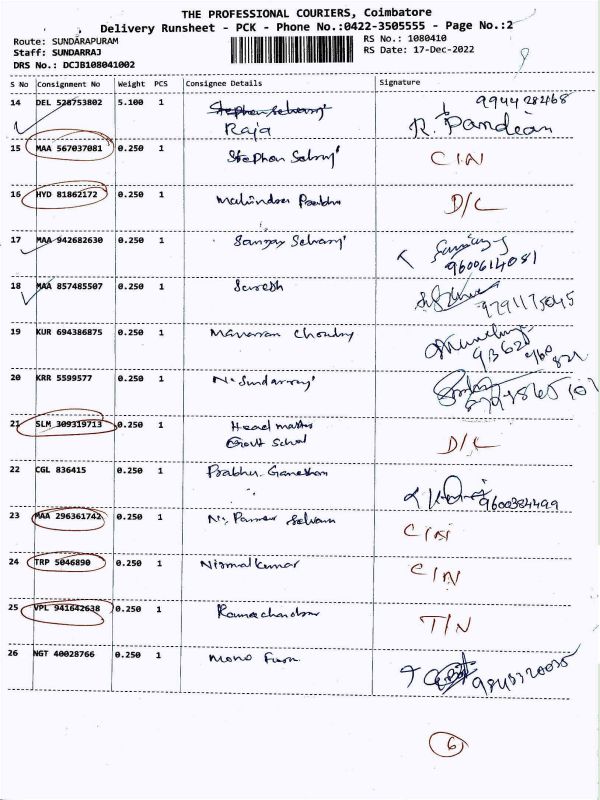 THE PROFESSIONAL COURIERS, Coimbatore
Delivery Runsheet - PCK - Phone No.:0422-3505555 - Page No.:2
Route: SUNDARAPURAM
Staff: SUNDARRAJ
DRS No.: DCJB108041002
RS No.: 1080410
RS Date: 17-Dec-2022
S No Consignment No Weight PCS Consignee Details Signature
14 DEL 528753802 5.100 1 9944282468
Raja R. Pandean
15 MAA 567037081 0.250 1 Stephen C/N
16 HYD 81862172 0.250 1 Prabhu D/C
17 MAA 942682630 0.250 1 Sanjay
9600614081
18 MAA 857485507 0.250 1 Suresh
19 KUR 694386875 0.250 1
20 KRR 5599577 0.250 1 N. Sundarraj
21 SLM 309319713 0.250 1 Head master
Govt School D/C
22 CGL 836415 0.250 1 Prabhu Ganeshan
9600384499
23 MAA 296361742 0.250 1 C/N
24 TRP 5046890 0.250 1 Nirmal kumar C/N
25 VPL 941642638 0.250 1 Ramachandran T/N
26 NGT 40028766 0.250 1 Mono
6